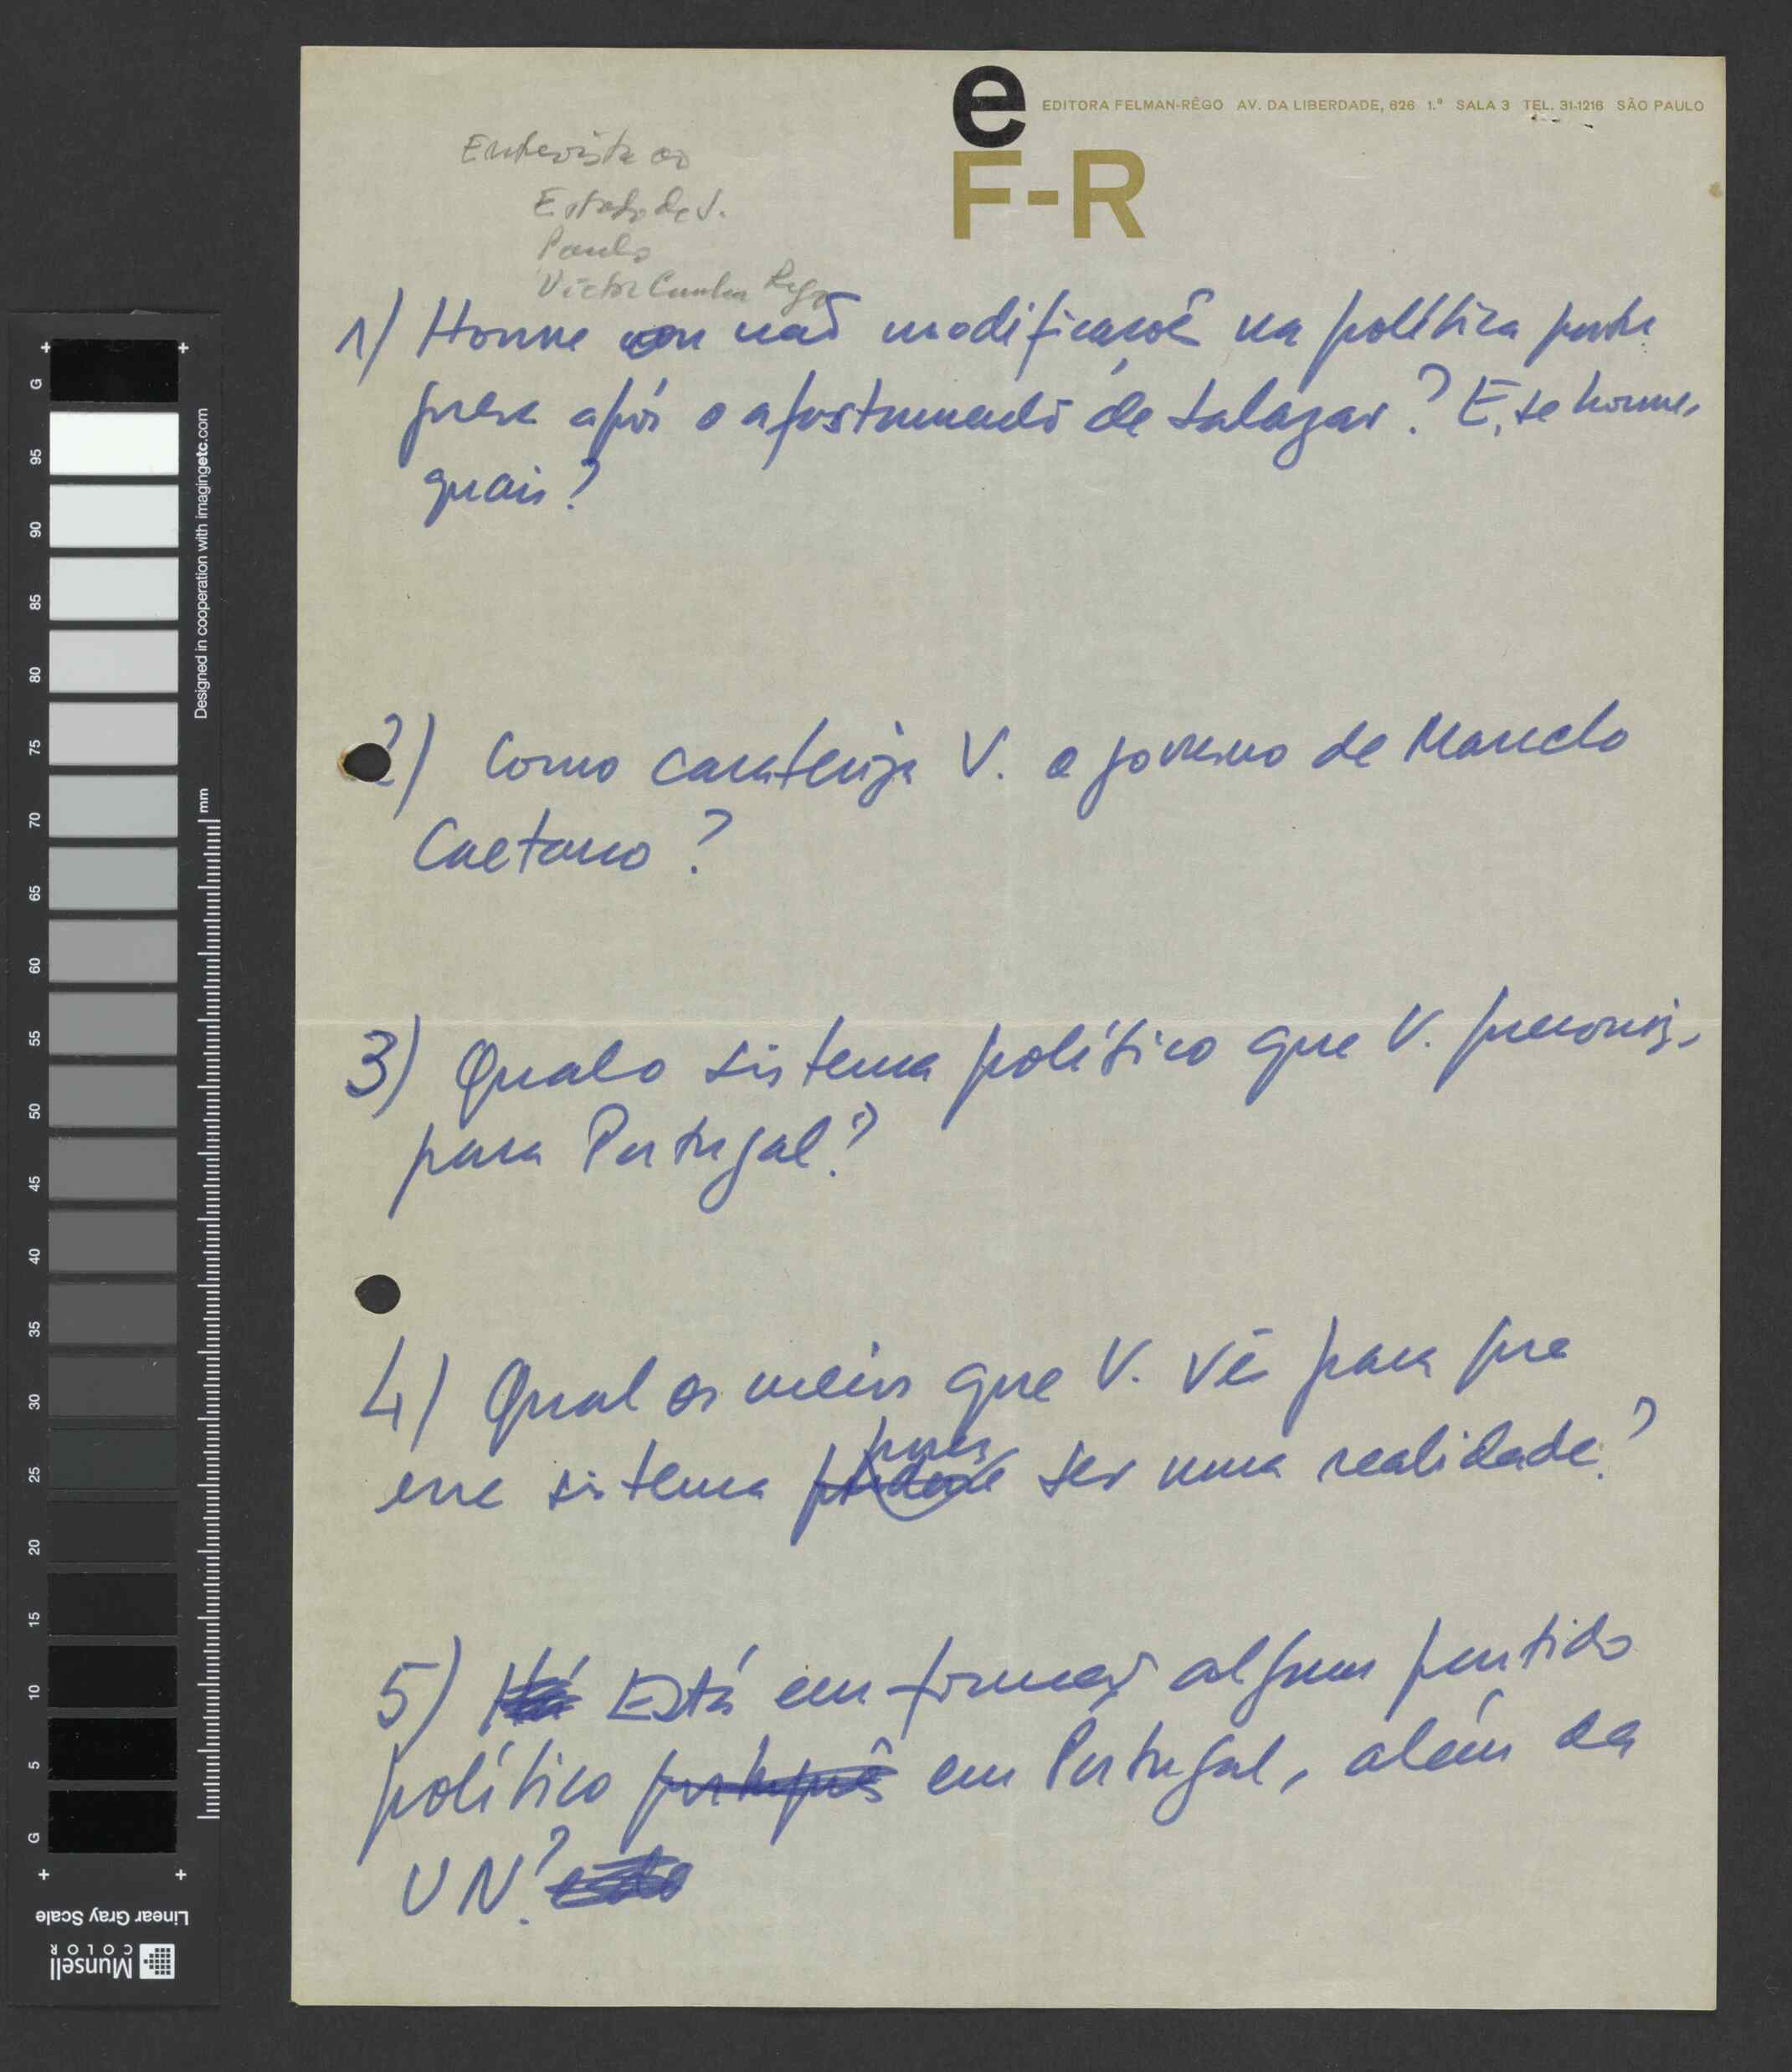 e
EDITORA FELMAN-RÊGO AV. DA LIBERDADE, 626 1.º SALA 3 TEL. 31-1216 SÃO PAULO
F-R
Entrevista ao
Estado de S.
Paulo
Victor Cunha Rego
1) Houve ou não modificações na política portu
guesa após o afastamento de Salazar? E, se houve,
quais?
2) Como carateriza V. o governo de Marcelo
Caetano?
3) Qual o sistema político que V. preconiza
para Portugal?
4) Qual os meios que V. vê para que
esse sistema possa ser uma realidade?
5) Há Está em formação algum partido
político português em Portugal, além da
UN?
G
95
90
85
80
75
70
65
60
55
50
45
40
35
30
25
20
15
10
5
G
Designed in cooperation with imagingetc.com
mm
Linear Gray Scale
Munsell
COLOR